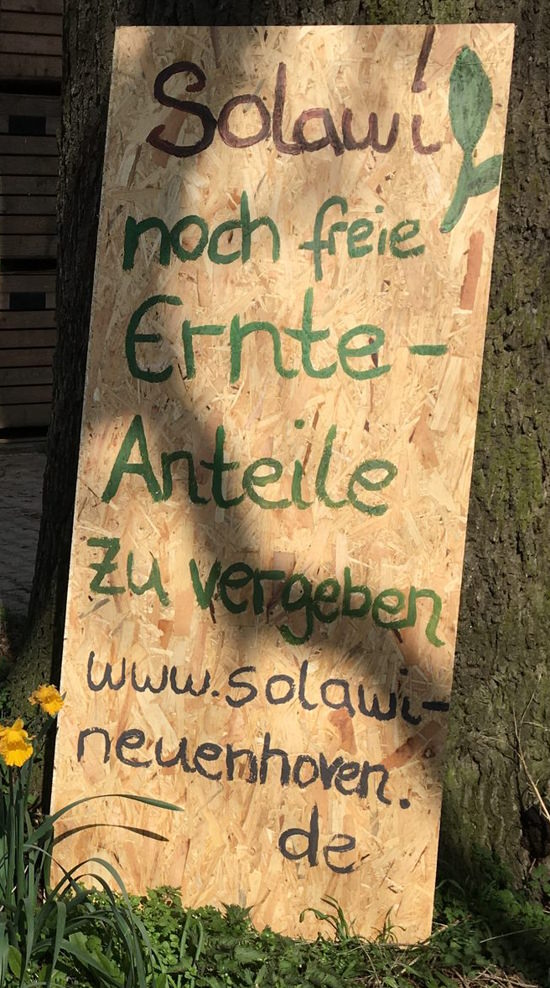 Solawi!
noch freie
Ernte-
Anteile
zu vergeben
www.solawi-
neuenhoven.
de